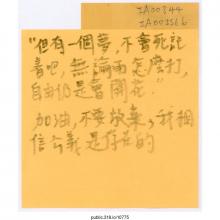 "但有一個夢,不會死記
著吧,無論雨怎麼打,
自由仍是會開花"
加油,不要放棄,我相
信公義是存在的
public.318.io/10775